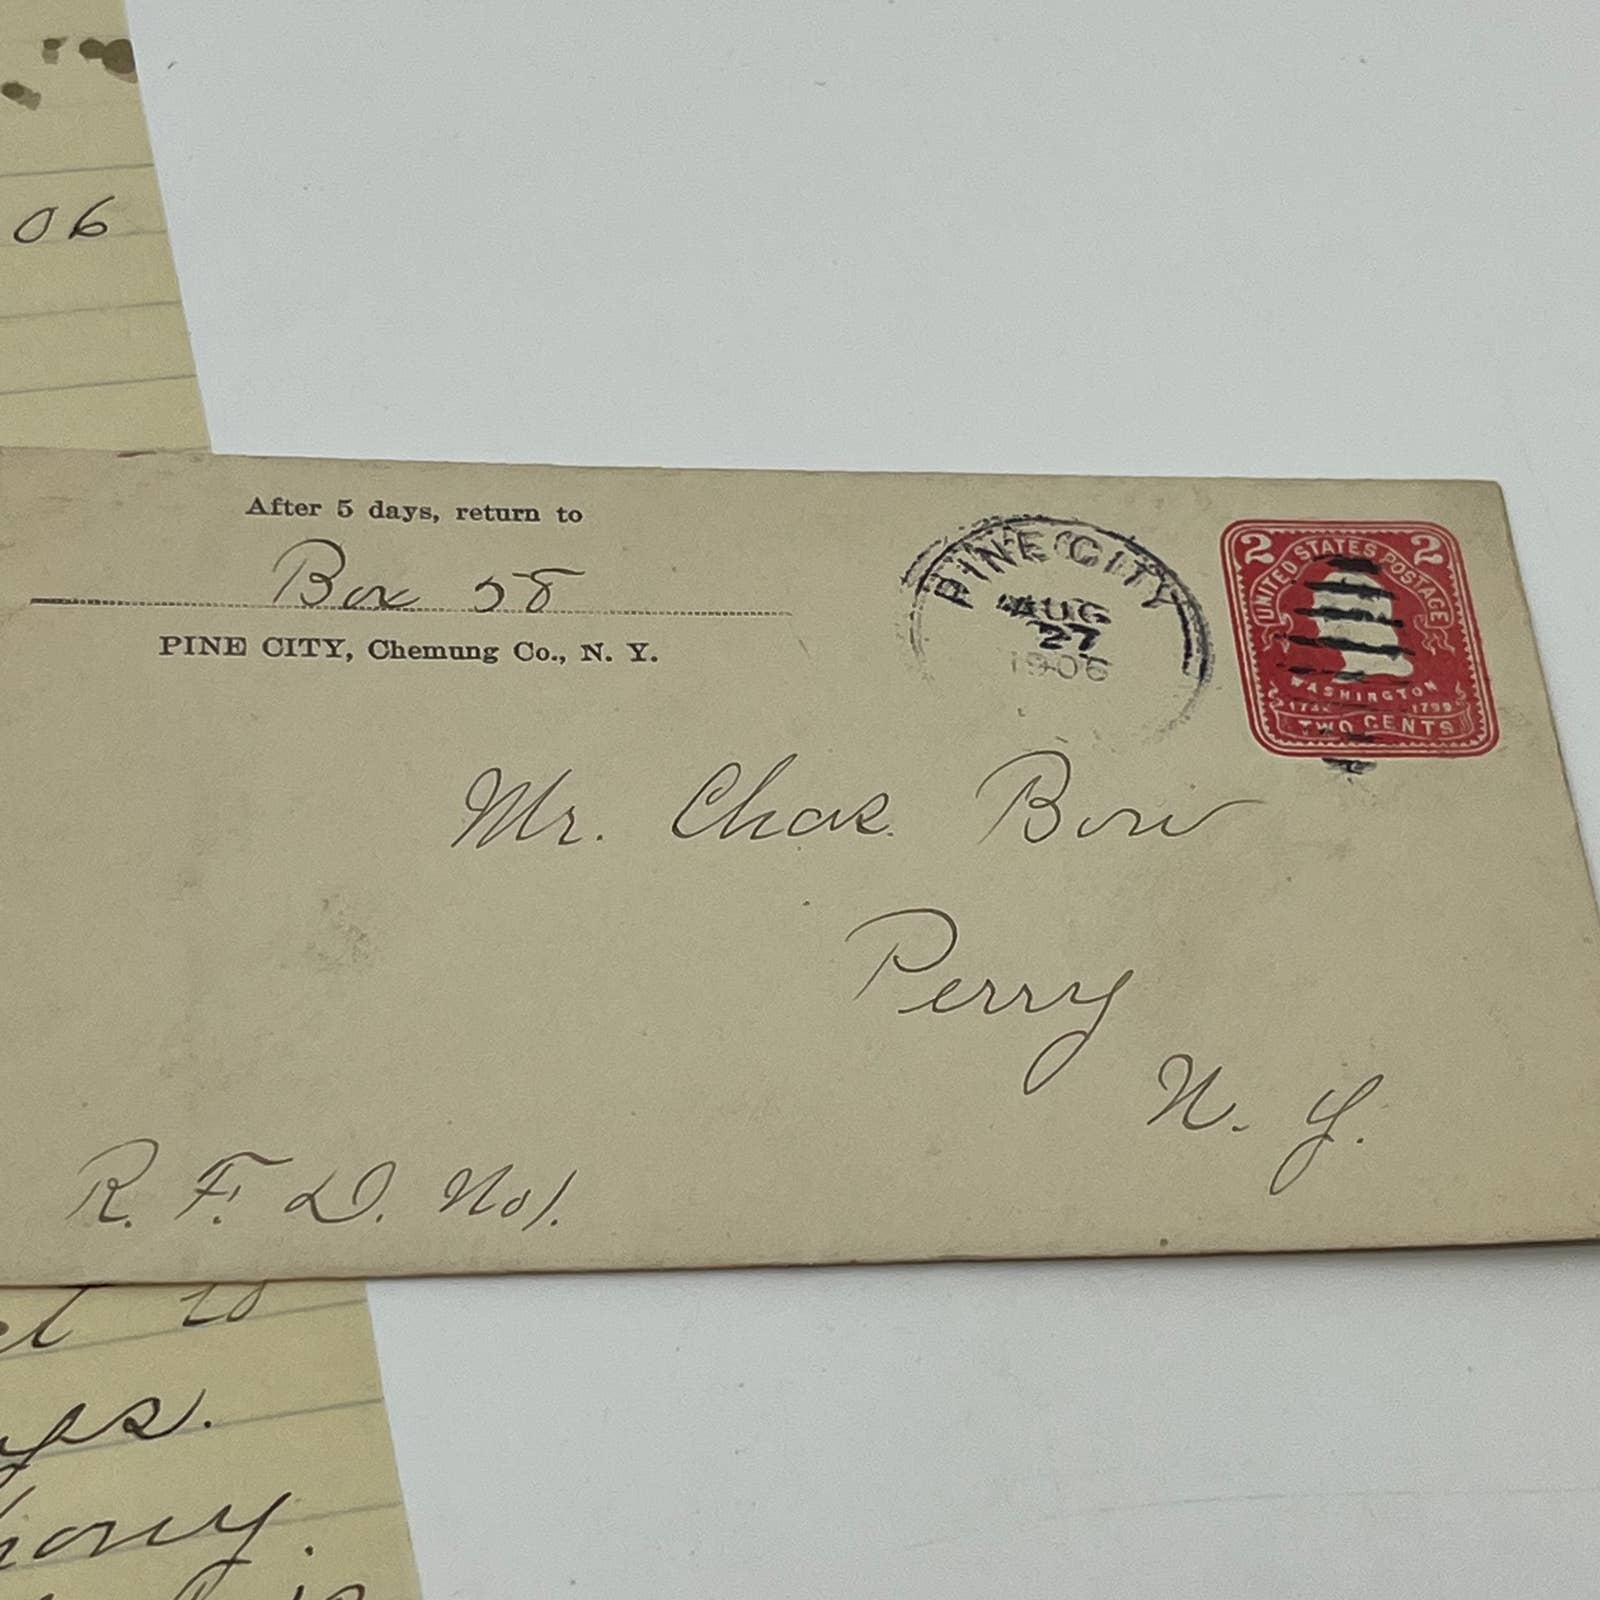 06
After 5 days, return to
Box 58
PINE CITY, Chemung Co., N. Y.
PINE CITY
AUG
27
1906
2 UNITED STATES POSTAGE 2
WASHINGTON
1799
TWO CENTS
Mr. Chas. Bow
Perry
N. Y.
R. F. D. No 1.